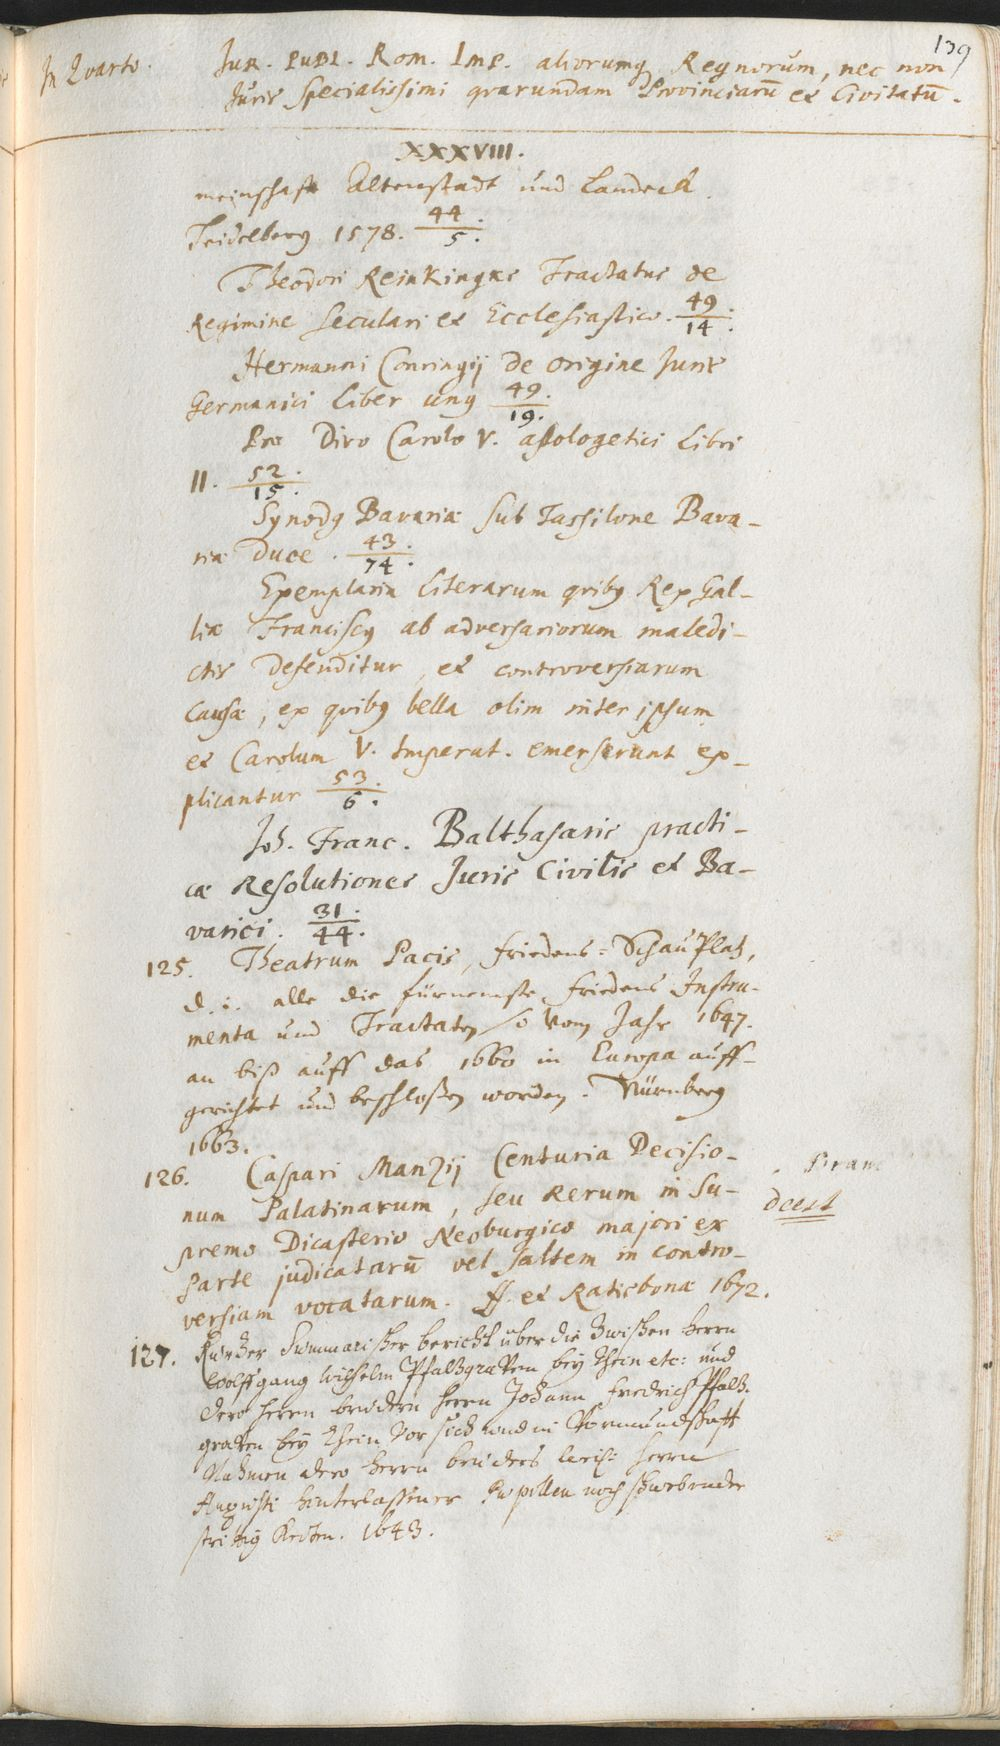 139
In Quarto. Jur. Publ. Rom. Imp. aliorumq Regnorum, nec non
Juris specialissimi qvarundam Provinciarū et Civitatū.
XXXVIII.
meinschafft Altenstadt und Landeck.
Heidelberg 1578. 44/5.
Theodori Reinkingks Tractatus de
Regimine Seculari et Ecclesiastico. 49/14.
Hermanni Conringij de origine Juris
Germanici Liber unq 49/19.
Pro Divo Carolo V. apologetici Libri
II. 52/15.
Synodq Bavariæ sub Tassilone Bava-
riæ Duce. 43/74.
Exemplaria Literarum qvibq Rex Gal-
liæ Franciscq ab adversariorum maledi-
ctis defenditur, et controversiarum
causæ, ex qvibq bella olim inter ipsum
et Carolum V. Imperat. emerserunt ex-
plicantur 53/6.
Joh. Franc. Balthasaris practi-
cæ Resolutiones Juris Civilis et Ba-
varici. 31/44.
125. Theatrum Pacis, Friedens-SchauPlatz,
d. i. alle die fürnemste Friedens Instru-
menta und Tractaten so vom Jahr 1647.
an biß auff das 1660 in Europa auff-
gerichtet und beschloßen worden. Nürnberg
1663.
126. Caspari Manzij Centuria Decisio-
num Palatinarum, seu Rerum in Su-
premo Dicasterio Neoburgico majori ex
parte judicatarū vel saltem in contro-
versiam vocatarum. ff. et Ratisbonæ 1672.
deest
127. Kurtzer Summarischer bericht über die zwischen herrn
Wolffgang Wilhelm Pfaltzgraffen bey Rhein etc: und
dero herrn brudern herrn Johann Friedrich Pfaltz-
graffen bey Rhein vor sich und in Vormundschafft
Nahmen dero herrn bruders herrn
Augusti hinterlassener Pupillen noch schwebende
strittig 1643.